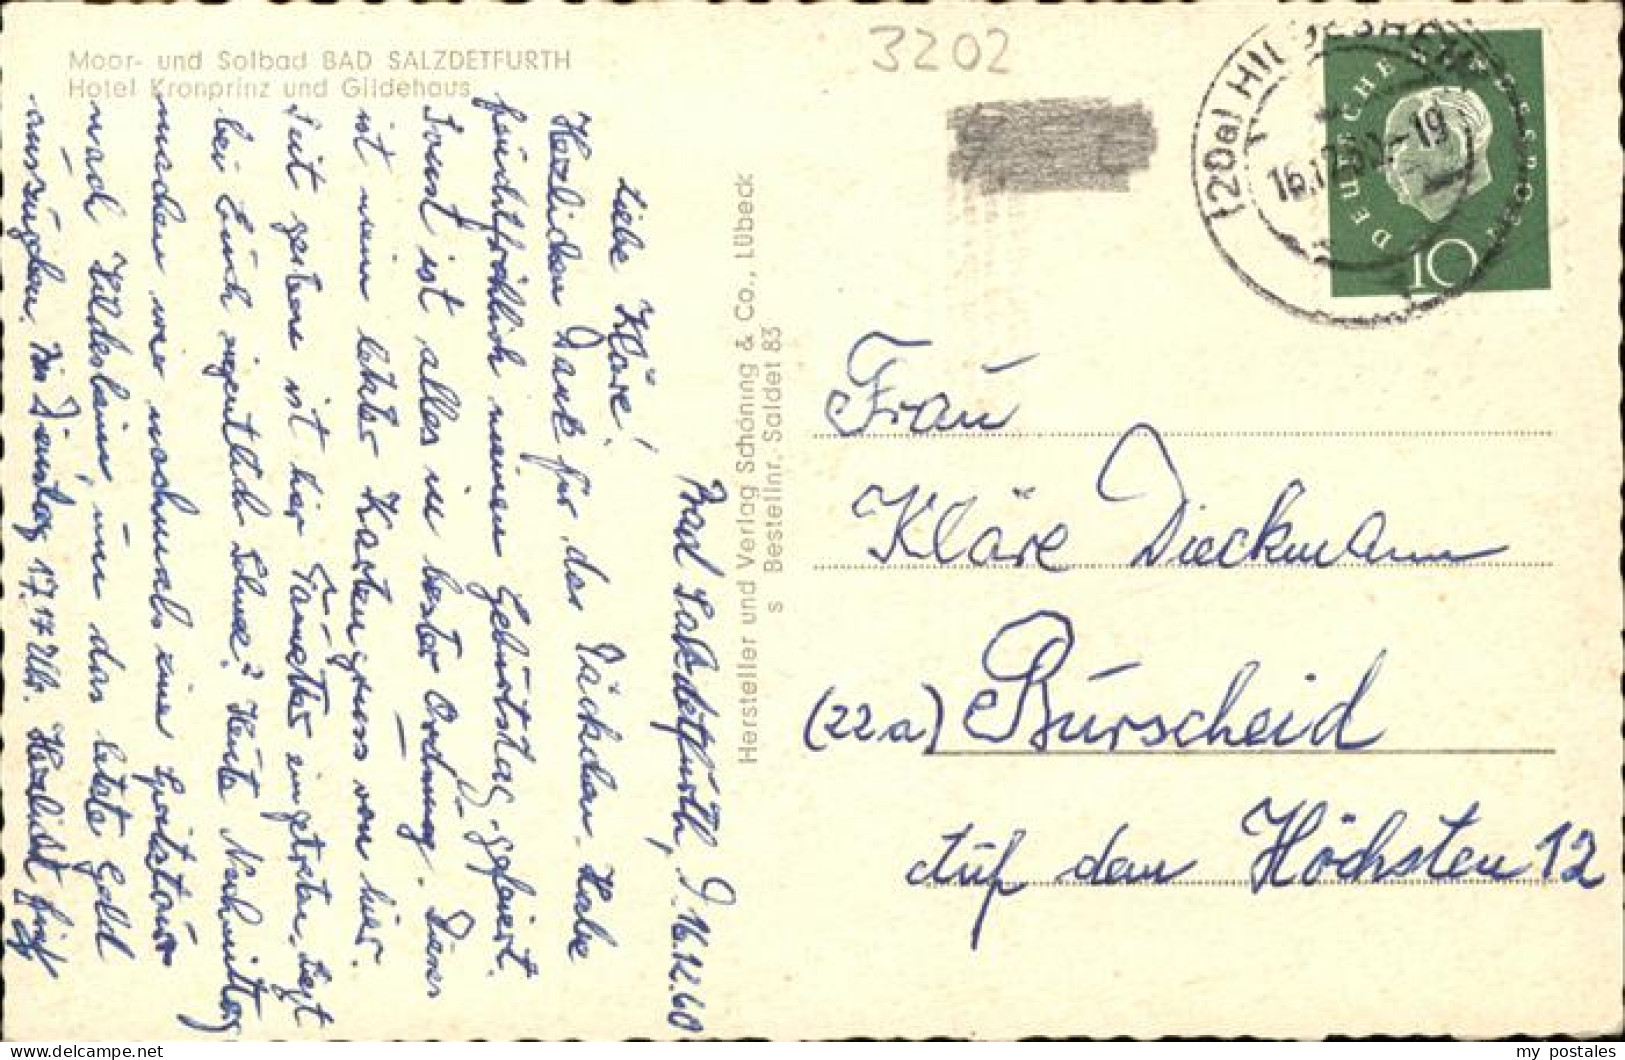 Moor- und Solbad BAD SALZDETFURTH
Hotel Kronprinz und Gildehaus
3202
(20a) HILDESHEIM
16.12.60.-19
DEUTSCHE BUNDESPOST
10
Bad Salzdetfurth, d. 16.12.60
Liebe Kläre!
Herzlichen Dank für das Päckchen. Habe
feuchtfröhlich meinen Geburtstag gefeiert.
Sonst ist alles in bester Ordnung. Dieses
ist mein letzter Kartengruss von hier.
Seit gestern ist hier Tauwetter eingetreten. Liegt
bei Euch eigentlich Schnee? Heute Nachmittag
machen wir nochmals eine
nach Hildesheim, um das letzte Geld
Am Dienstag 17.17 Uhr. Herzlichst
Hersteller und Verlag Schöning & Co., Lübeck
S Bestellnr. Saldet 83
Frau
Kläre Dieckmann
(22a) Burscheid
Auf dem Höchsten 12
my postales